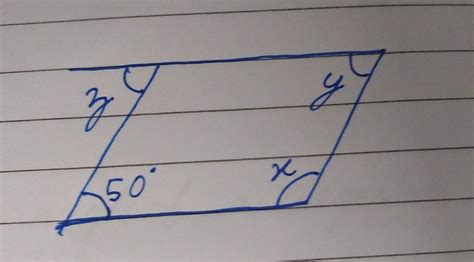 z y
50° x